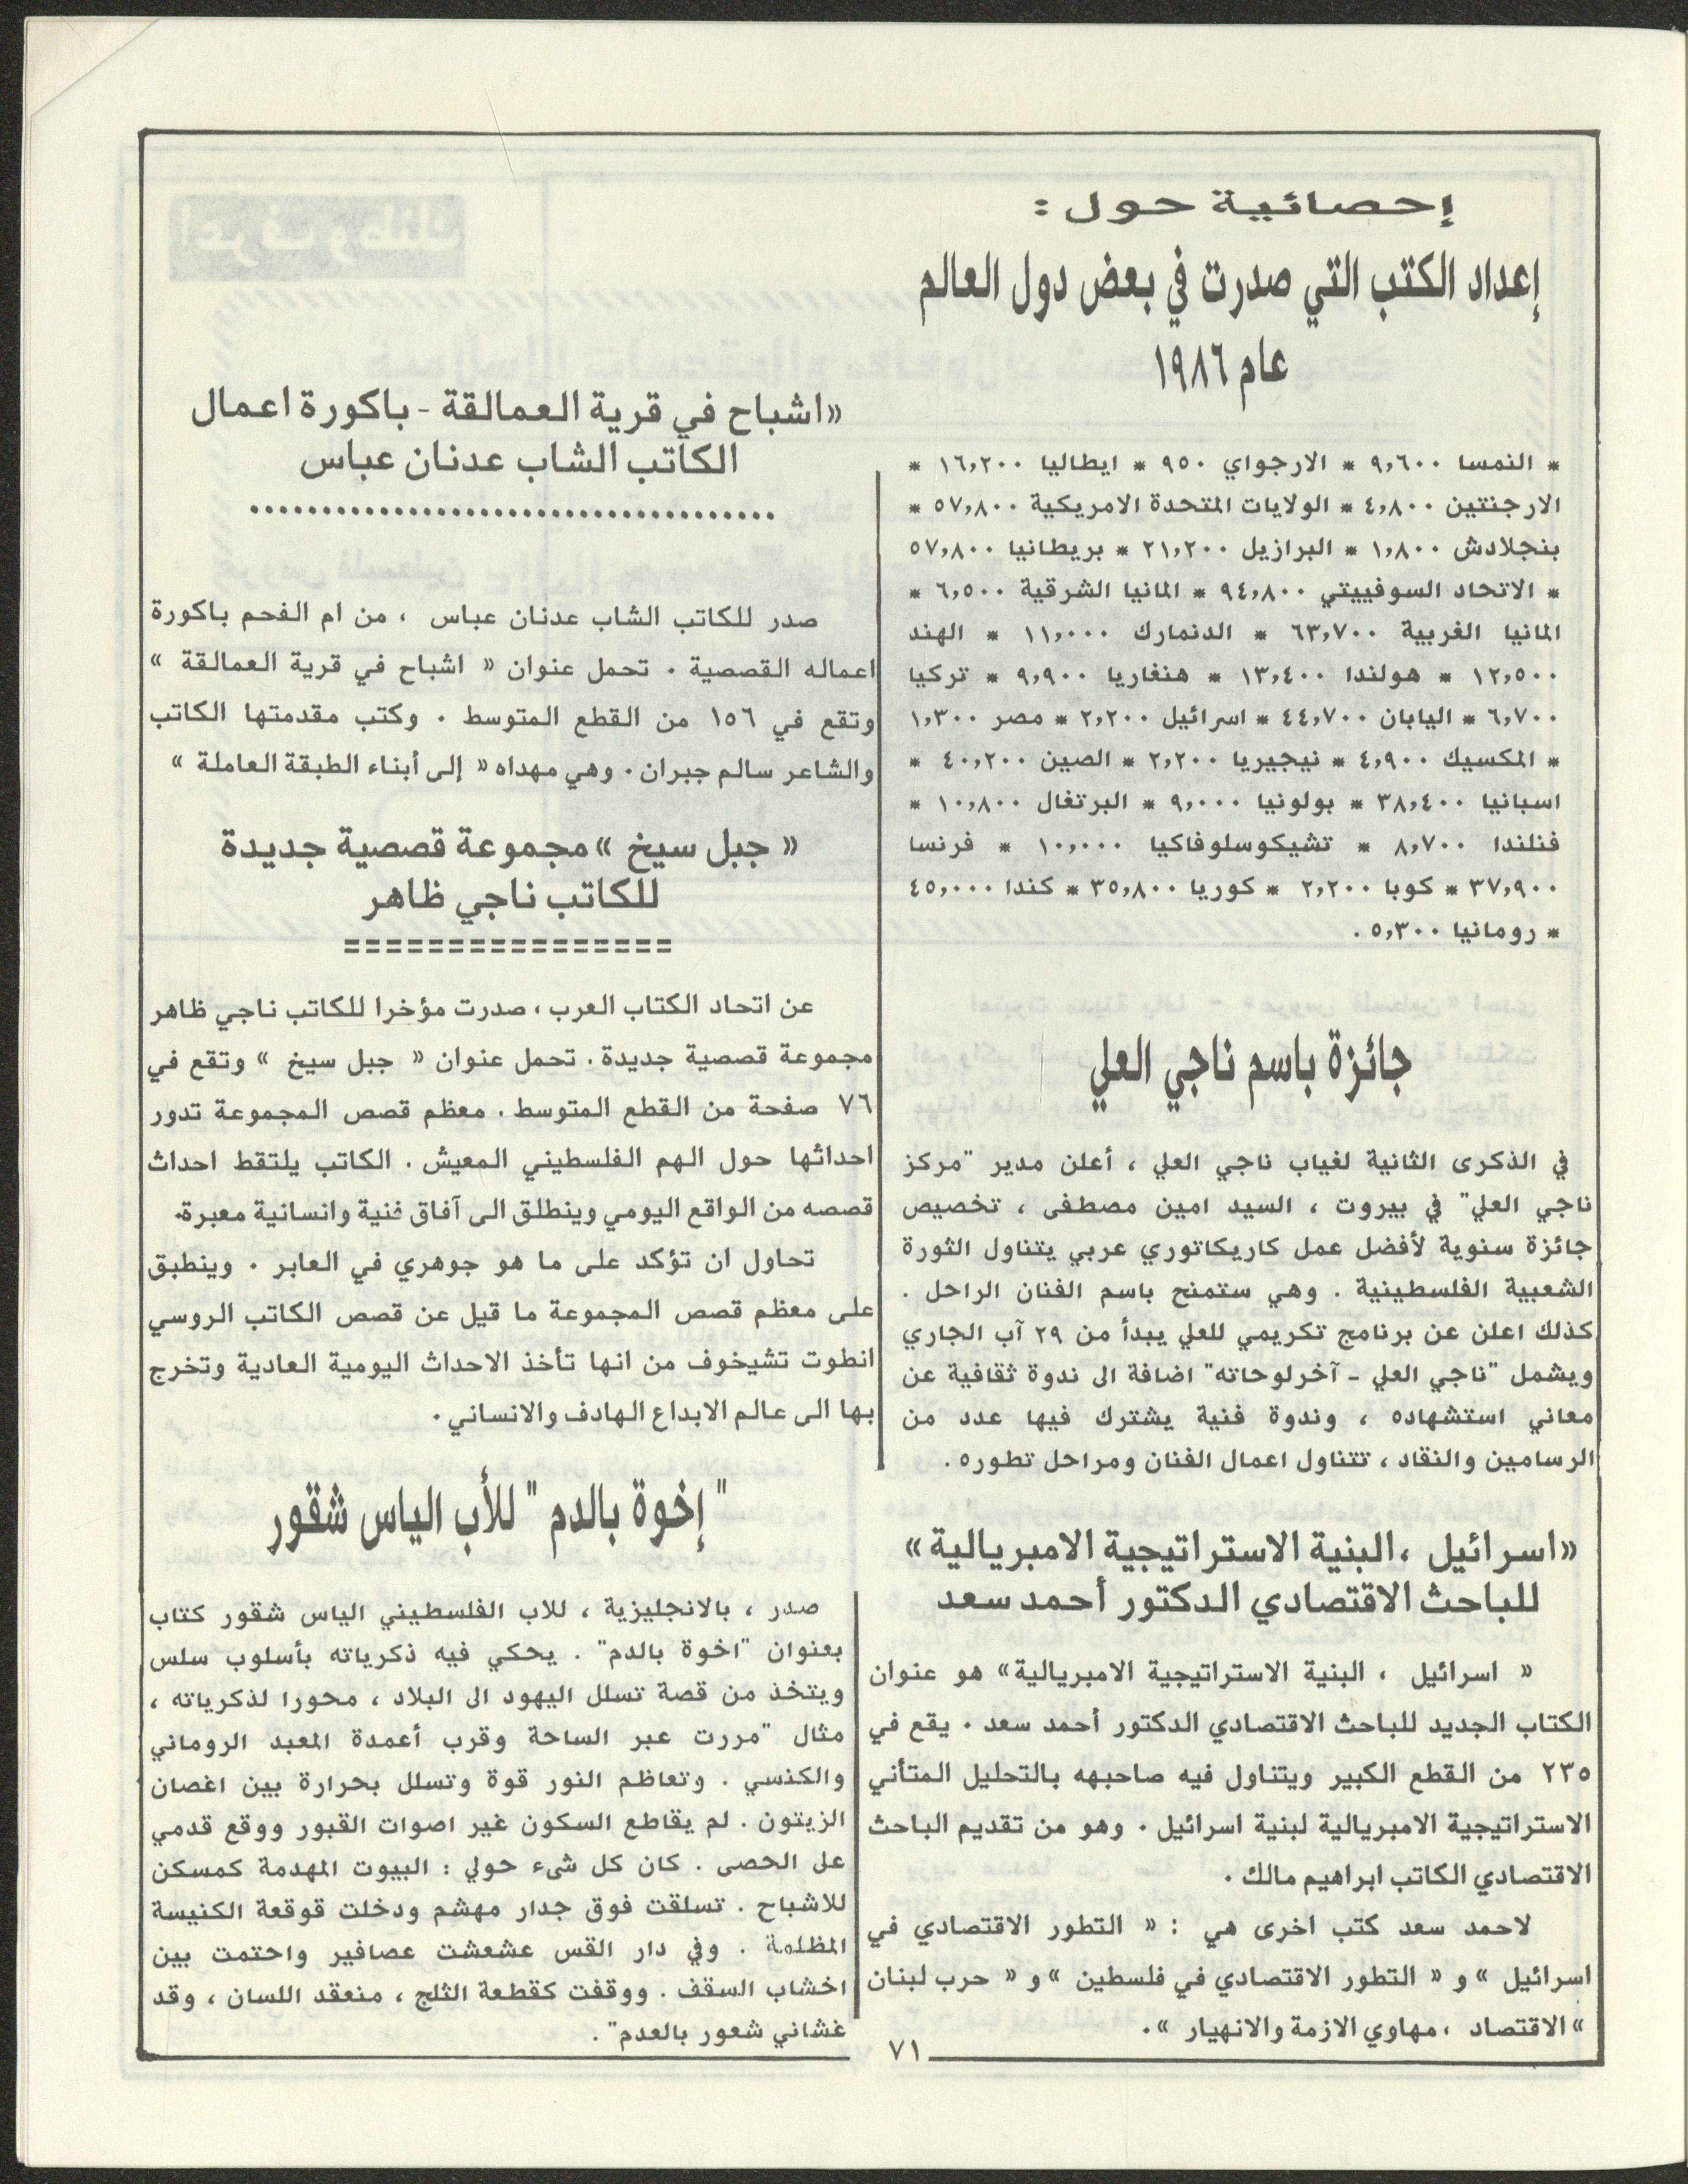 إحصائية حول :
إعداد الكتب التي صدرت في بعض دول العالم
عام ١٩٨٦
* النمسا ٩,٦٠٠ * الارجواي ٩٥٠ * ايطاليا ١٦,٢٠٠ *
الارجنتين ٤,٨٠٠ * الولايات المتحدة الامريكية ٥٧,٨٠٠ *
بنجلادش ١,٨٠٠ * البرازيل ٢١,٢٠٠ * بريطانيا ٥٧,٨٠٠
* الاتحاد السوفييتي ٩٤,٨٠٠ * المانيا الشرقية ٦,٥٠٠ *
المانيا الغربية ٦٣,٧٠٠ * الدنمارك ١١,٠٠٠ * الهند
١٢,٥٠٠ * هولندا ١٣,٤٠٠ * هنغاريا ٩,٩٠٠ * تركيا
٦,٧٠٠ * اليابان ٤٤,٧٠٠ * اسرائيل ٢,٢٠٠ * مصر ١,٣٠٠
* المكسيك ٤,٩٠٠ * نيجيريا ٢,٢٠٠ * الصين ٤٠,٢٠٠ *
اسبانيا ٣٨,٤٠٠ * بولونيا ٩,٠٠٠ * البرتغال ١٠,٨٠٠ *
فنلندا ٨,٧٠٠ * تشيكوسلوفاكيا ١٠,٠٠٠ * فرنسا
٣٧,٩٠٠ * كوبا ٢,٢٠٠ * كوريا ٣٥,٨٠٠ * كندا ٤٥,٠٠٠
* رومانيا ٥,٣٠٠ .
جائزة باسم ناجي العلي
في الذكرى الثانية لغياب ناجي العلي ، أعلن مدير "مركز
ناجي العلي" في بيروت ، السيد امين مصطفى ، تخصيص
جائزة سنوية لأفضل عمل كاريكاتوري عربي يتناول الثورة
الشعبية الفلسطينية . وهي ستمنح باسم الفنان الراحل .
كذلك اعلن عن برنامج تكريمي للعلي يبدأ من ٢٩ آب الجاري
ويشمل "ناجي العلي - آخر لوحاته" اضافة الى ندوة ثقافية عن
معاني استشهاده ، وندوة فنية يشترك فيها عدد من
الرسامين والنقاد ، تتناول اعمال الفنان ومراحل تطوره .
«اسرائيل ، البنية الاستراتيجية الامبريالية»
للباحث الاقتصادي الدكتور أحمد سعد
« اسرائيل ، البنية الاستراتيجية الامبريالية» هو عنوان
الكتاب الجديد للباحث الاقتصادي الدكتور أحمد سعد . يقع في
٢٣٥ من القطع الكبير ويتناول فيه صاحبهه بالتحليل المتأني
الاستراتيجية الامبريالية لبنية اسرائيل . وهو من تقديم الباحث
الاقتصادي الكاتب ابراهيم مالك .
لاحمد سعد كتب اخرى هي : « التطور الاقتصادي في
اسرائيل » و « التطور الاقتصادي في فلسطين » و « حرب لبنان
» الاقتصاد ، مهاوي الازمة والانهيار » .
«اشباح في قرية العمالقة - باكورة اعمال
الكاتب الشاب عدنان عباس
....................................
صدر للكاتب الشاب عدنان عباس ، من ام الفحم باكورة
اعماله القصصية . تحمل عنوان « اشباح في قرية العمالقة »
وتقع في ١٥٦ من القطع المتوسط . وكتب مقدمتها الكاتب
والشاعر سالم جبران . وهي مهداه « إلى أبناء الطبقة العاملة »
« جبل سيخ » مجموعة قصصية جديدة
للكاتب ناجي ظاهر
================
عن اتحاد الكتاب العرب ، صدرت مؤخرا للكاتب ناجي ظاهر
مجموعة قصصية جديدة . تحمل عنوان « جبل سيخ » وتقع في
٧٦ صفحة من القطع المتوسط . معظم قصص المجموعة تدور
احداثها حول الهم الفلسطيني المعيش . الكاتب يلتقط احداث
قصصه من الواقع اليومي وينطلق الى آفاق فنية وانسانية معبرة.
تحاول ان تؤكد على ما هو جوهري في العابر . وينطبق
على معظم قصص المجموعة ما قيل عن قصص الكاتب الروسي
انطوت تشيخوف من انها تأخذ الاحداث اليومية العادية وتخرج
بها الى عالم الابداع الهادف والانساني .
" إخوة بالدم " للأب الياس شقور
صدر ، بالانجليزية ، للاب الفلسطيني الياس شقور كتاب
بعنوان "اخوة بالدم" . يحكي فيه ذكرياته بأسلوب سلس
ويتخذ من قصة تسلل اليهود الى البلاد ، محورا لذكرياته ،
مثال "مررت عبر الساحة وقرب أعمدة المعبد الروماني
والكنسي . وتعاظم النور قوة وتسلل بحرارة بين اغصان
الزيتون . لم يقاطع السكون غير اصوات القبور ووقع قدمي
على الحصى . كان كل شىء حولي : البيوت المهدمة كمسكن
للاشباح . تسلقت فوق جدار مهشم ودخلت قوقعة الكنيسة
المظلمة . وفي دار القس عشعشت عصافير واحتمت بين
اخشاب السقف . ووقفت كقطعة الثلج ، منعقد اللسان ، وقد
غشاني شعور بالعدم" .
٧١